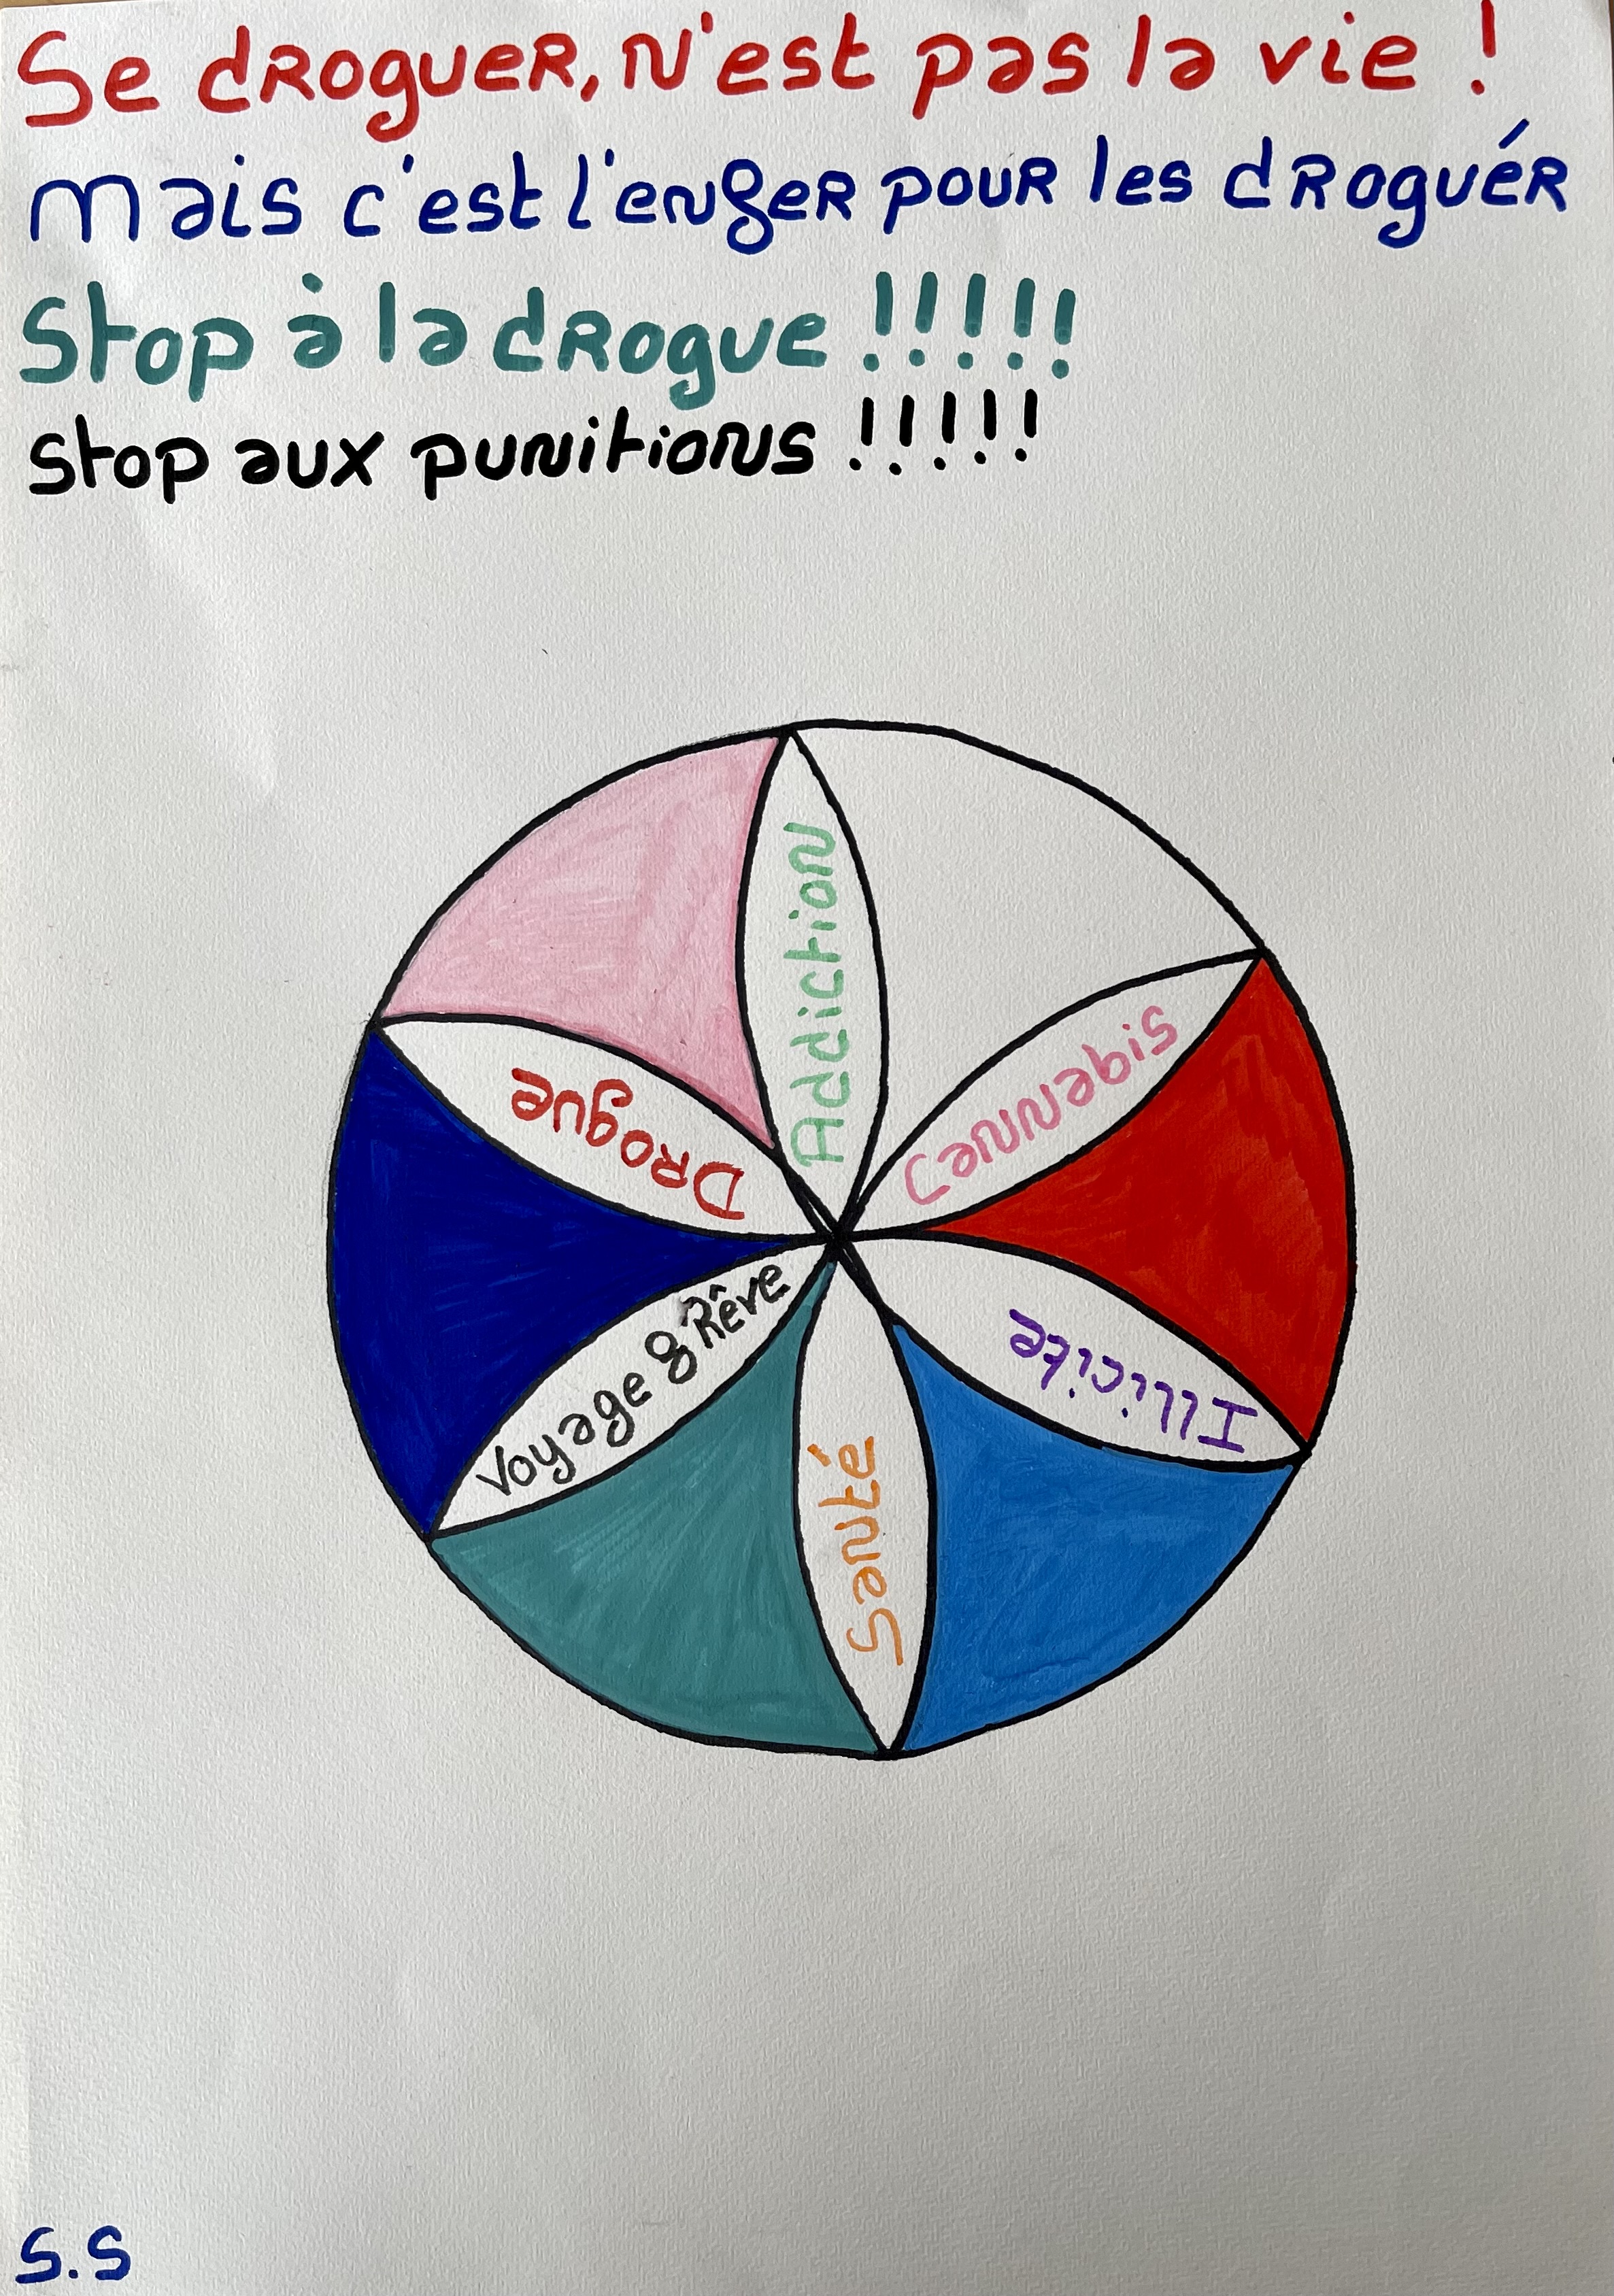 Se droguer, n'est pas la vie !
Mais c'est l'enfer pour les droguér
Stop à la drogue !!!!!
Stop aux punitions !!!!!
Addiction
Cannabis
Drogue
Voyage & Rêve
Illicite
Santé
S.S